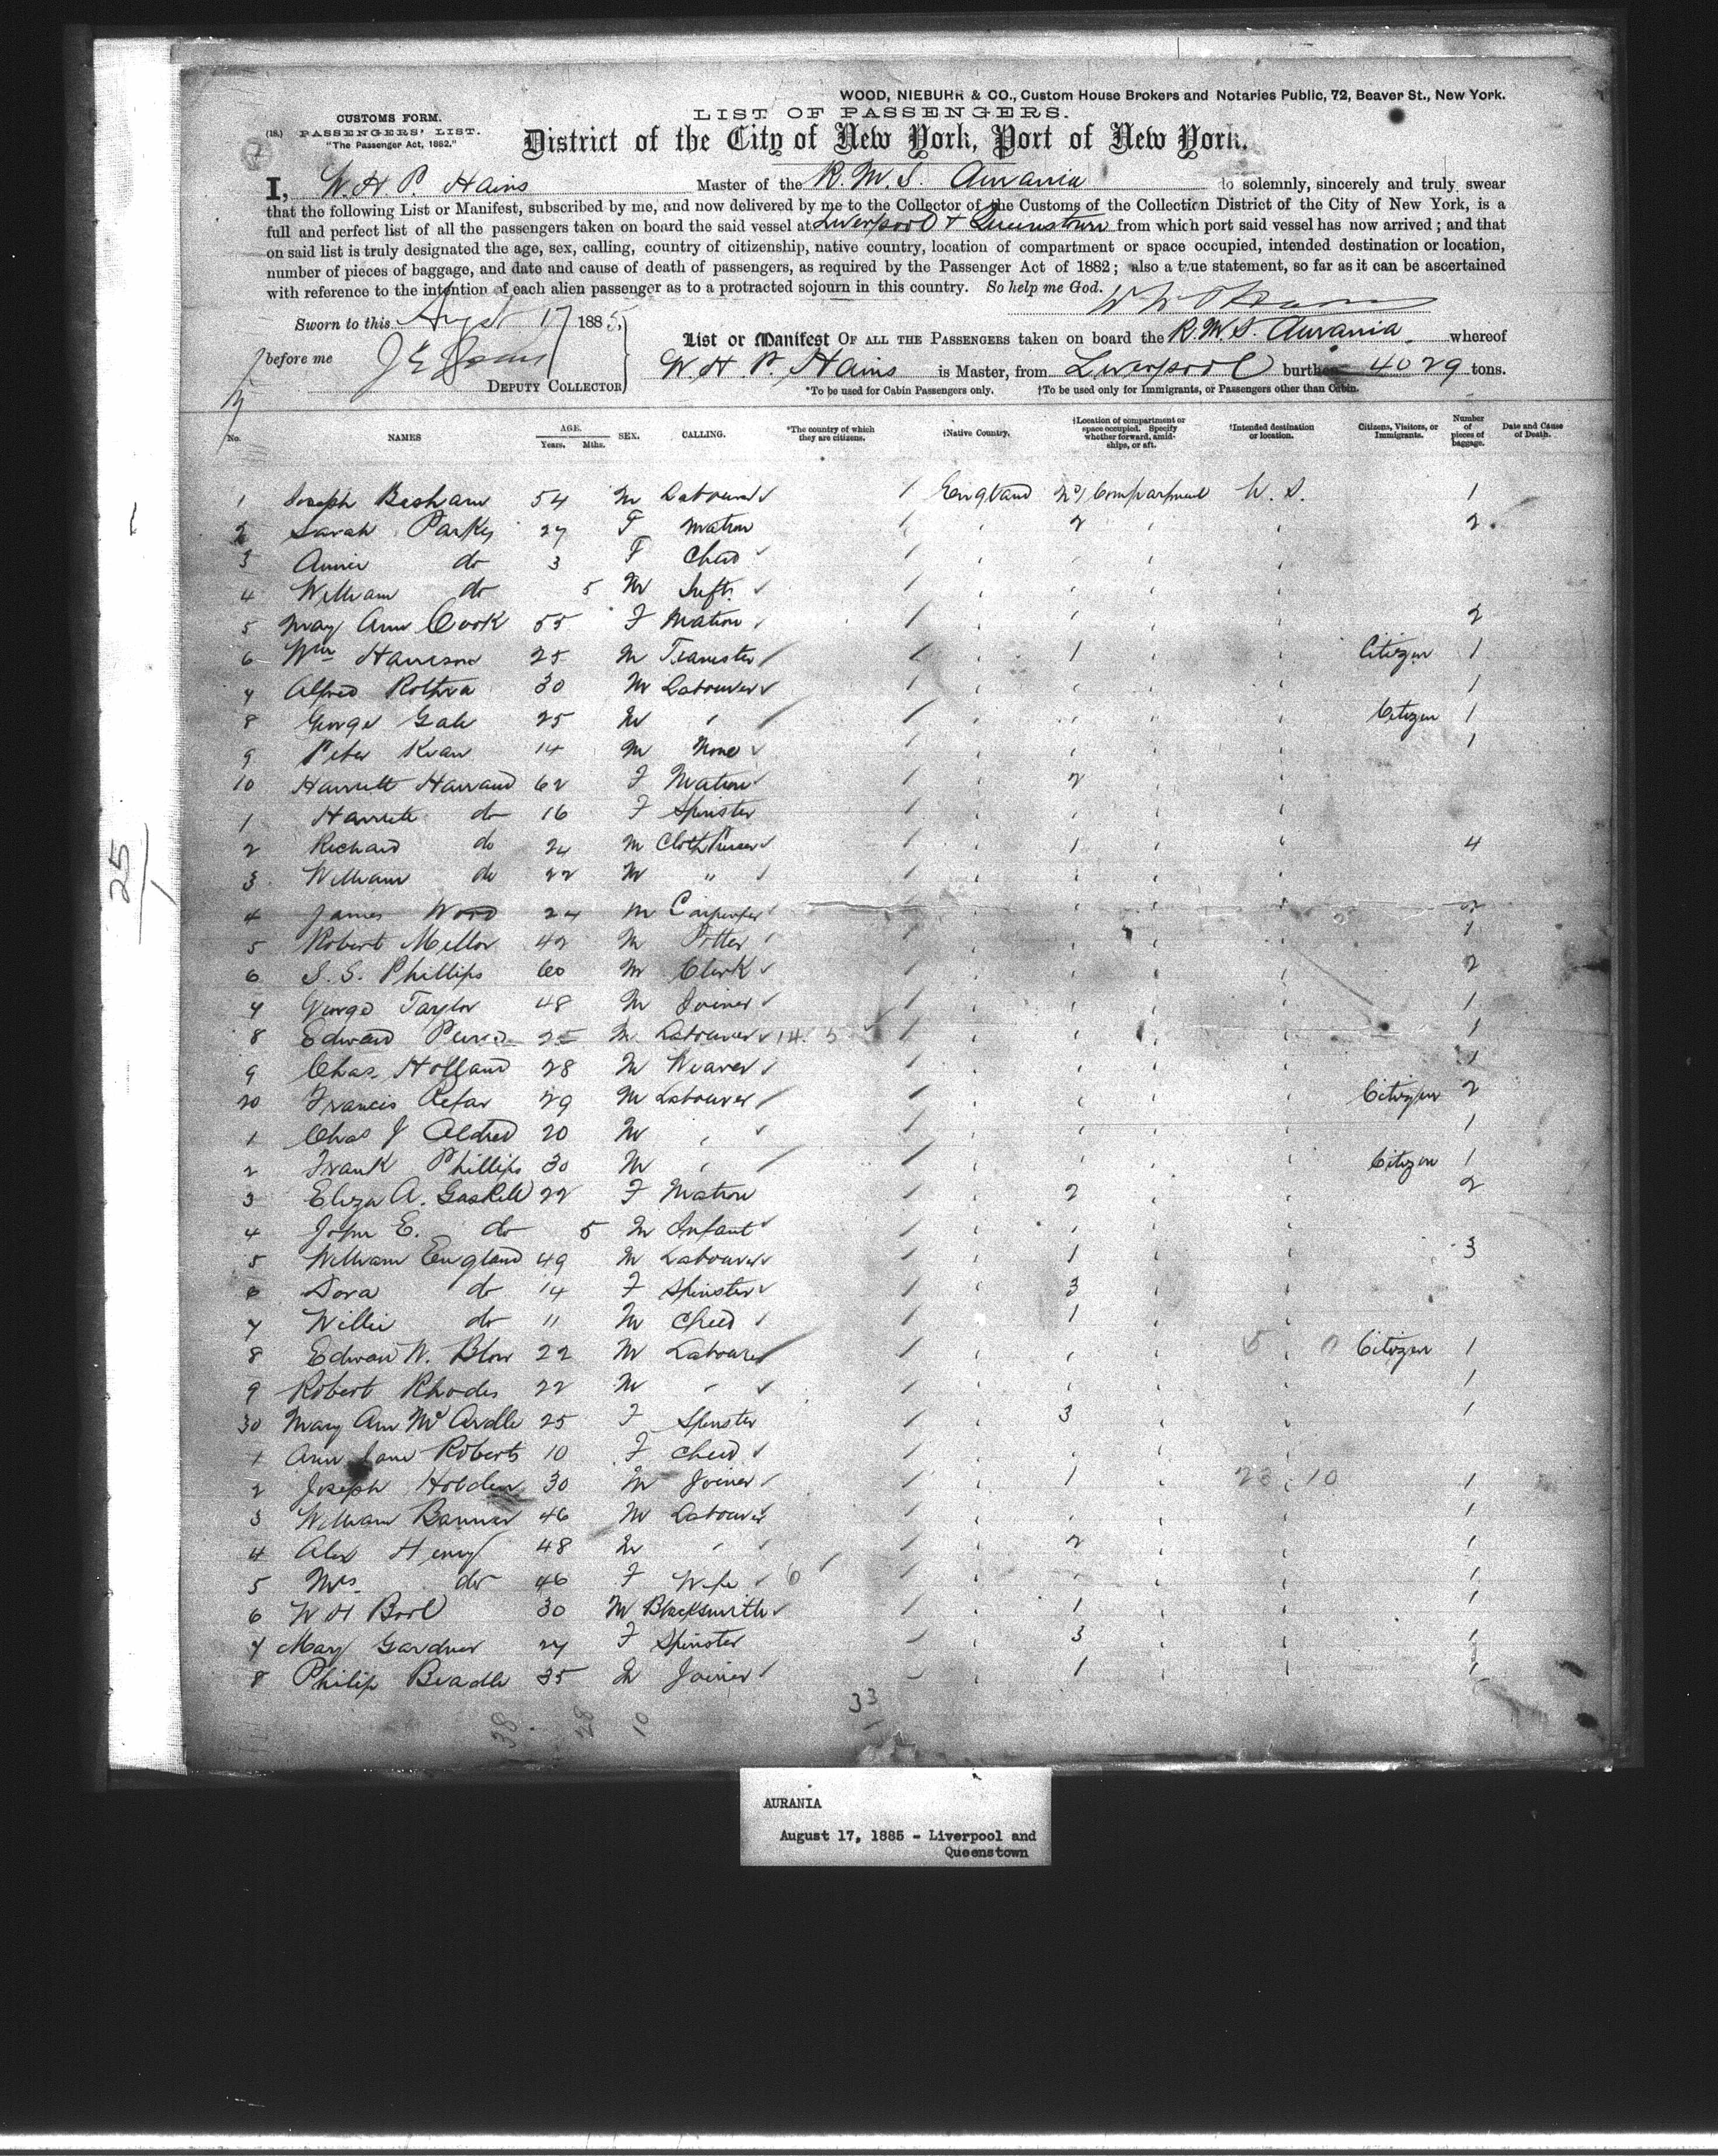 WOOD, NIEBUHR & CO., Custom House Brokers and Notaries Public, 72, Beaver St., New York.
CUSTOMS FORM.
LIST OF PASSENGERS.
(18.) PASSENGERS' LIST.
"The Passenger Act, 1882."
District of the City of New York, Port of New York.
I, W. H. P. Hains Master of the R. M. S. Aurania do solemnly, sincerely and truly swear
that the following List or Manifest, subscribed by me, and now delivered by me to the Collector of the Customs of the Collection District of the City of New York, is a
full and perfect list of all the passengers taken on board the said vessel at Liverpool & Queenstown from which port said vessel has now arrived; and that
on said list is truly designated the age, sex, calling, country of citizenship, native country, location of compartment or space occupied, intended destination or location,
number of pieces of baggage, and date and cause of death of passengers, as required by the Passenger Act of 1882; also a true statement, so far as it can be ascertained
with reference to the intention of each alien passenger as to a protracted sojourn in this country. So help me God.
Sworn to this August 17 1885,
before me
DEPUTY COLLECTOR
List or Manifest OF ALL THE PASSENGERS taken on board the R. M. S Aurania. whereof
W. H. P. Hains is Master, from Liverpool burthen 4029 tons.
*To be used for Cabin Passengers only. †To be used only for Immigrants, or Passengers other than Cabin.
No. NAMES AGE. Years. Mths. SEX. CALLING. *The country of which they are citizens. †Native Country. †Location of compartment or space occupied. Specify whether forward, amidships, or aft. †Intended destination or location. Citizens, Visitors, or Immigrants. Number of pieces of baggage. Date and Cause of Death.
1 Joseph 54 M Labourer England No 1 Compartment U. S. 1
2 Sarah 27 F Matron 2 2
3 Annie do 3 F Child
4 William do 5 M Inft.
5 Mary Ann Cook 55 F Matron 2
6 Wm Harrison 25 M Teamster 1 Citizen 1
7 Alfred 30 M Labourer 1
8 George Gale 25 M Citizen 1
9 Peter 14 M None 1
10 Harriett 62 F Matron 2
1 do 16 F Spinster
2 Richard do 24 M 1 4
3 William do 22 M "
4 James Wood 24 M Carpenter 2
5 Robert Mellor 42 M Potter 1
6 S. S. Phillips 60 M Clerk 2
7 George Taylor 48 M Joiner 1
8 Edward 25 M Labourer 14. 5 1
9 Chas. Holland 28 M Weaver 1
20 Francis 29 M Labourer Citizen 2
1 Chas J Aldred 20 M 1
2 Frank Phillips 30 M Citizen 1
3 Eliza A. Gaskill 22 F Matron 2 2
4 John E. do 5 M Infant
5 William England 49 M Labourer 1 3
6 Dora do 14 F Spinster 3
7 Willie do 11 M Child 1
8 Edward W. Blow 22 M Labourer 5 0 Citizen 1
9 Robert Rhodes 22 M 1
30 Mary Ann McArdle 25 F Spinster 3 1
1 Ann Jane Roberts 10 F Child
2 Joseph Holden 30 M Joiner 1 23 10 1
3 William 46 M Labourer 1
4 Alex Henry 48 M 2 1
5 Mrs. do 46 F Wife 6 1
6 W H 30 M Blacksmith 1 1
7 Mary Gardner 27 F Spinster 3 1
8 Philip Beadle 35 M Joiner 1 1
38 28 10 33
25
1
AURANIA
August 17, 1885 - Liverpool and
Queenstown